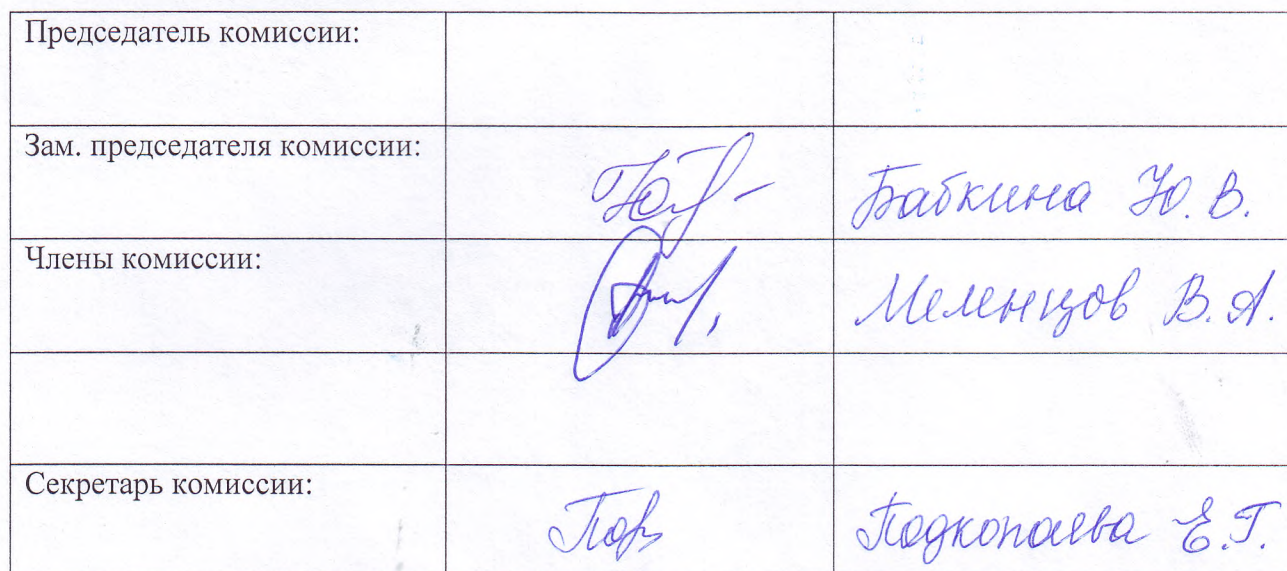 Председатель комиссии:
Зам. председателя комиссии:
Бабкина Ю. В.
Члены комиссии:
Меленцов В. А.
Секретарь комиссии:
Подкопаева Е. Г.